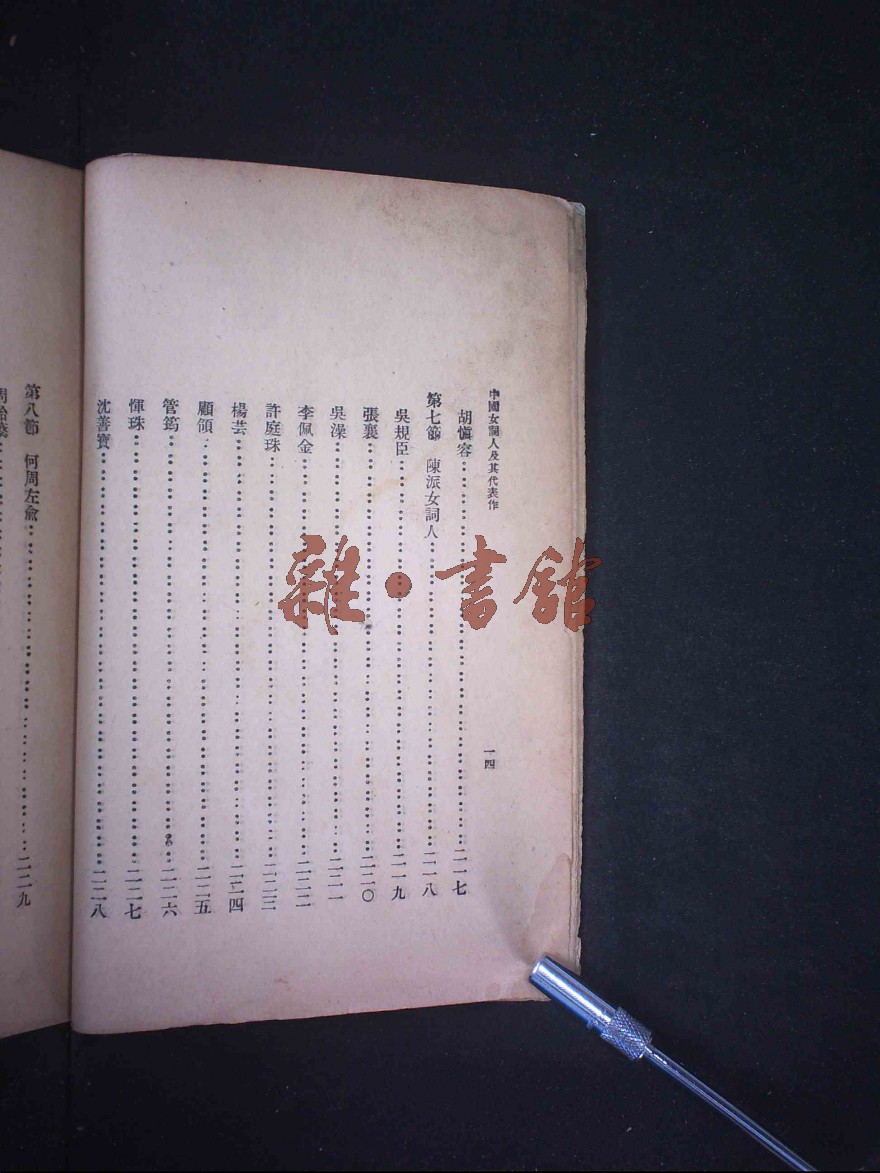 中國女詞人及其代表作
一四
胡愼容⋯⋯二一七
第七節　陳派女詞人⋯⋯二一八
吳規臣⋯⋯二一九
張襄⋯⋯二二〇
吳澡⋯⋯二二一
李佩金⋯⋯二二二
許庭珠⋯⋯二二三
楊芸⋯⋯二二四
顧領⋯⋯二二五
管筠⋯⋯二二六
惲珠⋯⋯二二七
沈善寶⋯⋯二二八
第八節　何周左俞⋯⋯二二九
雜·書館